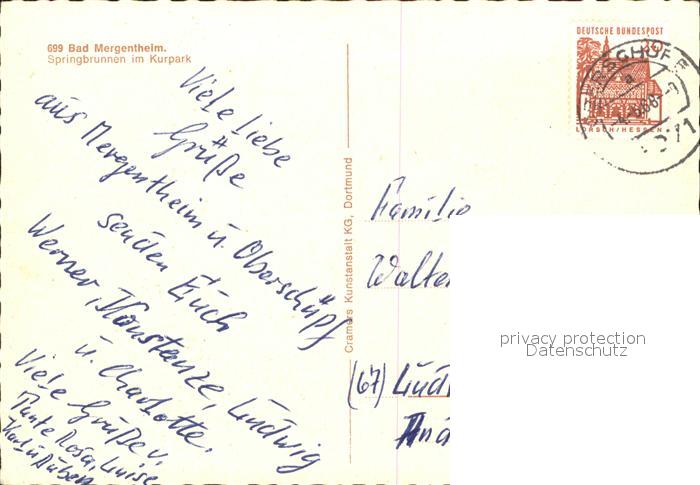 699 Bad Mergentheim.
Springbrunnen im Kurpark
Viele liebe
Grüße
aus Mergentheim u. Oberschüpf
senden Euch
Werner, Konstanze, Ludwig
u. Charlotte.
Viele Grüße v.
Tante Rosa, Luise
Cramers Kunstanstalt KG, Dortmund
DEUTSCHE BUNDESPOST
30
LORSCH/HESSEN
Familie
Walte
(67) Lud
privacy protection
Datenschutz